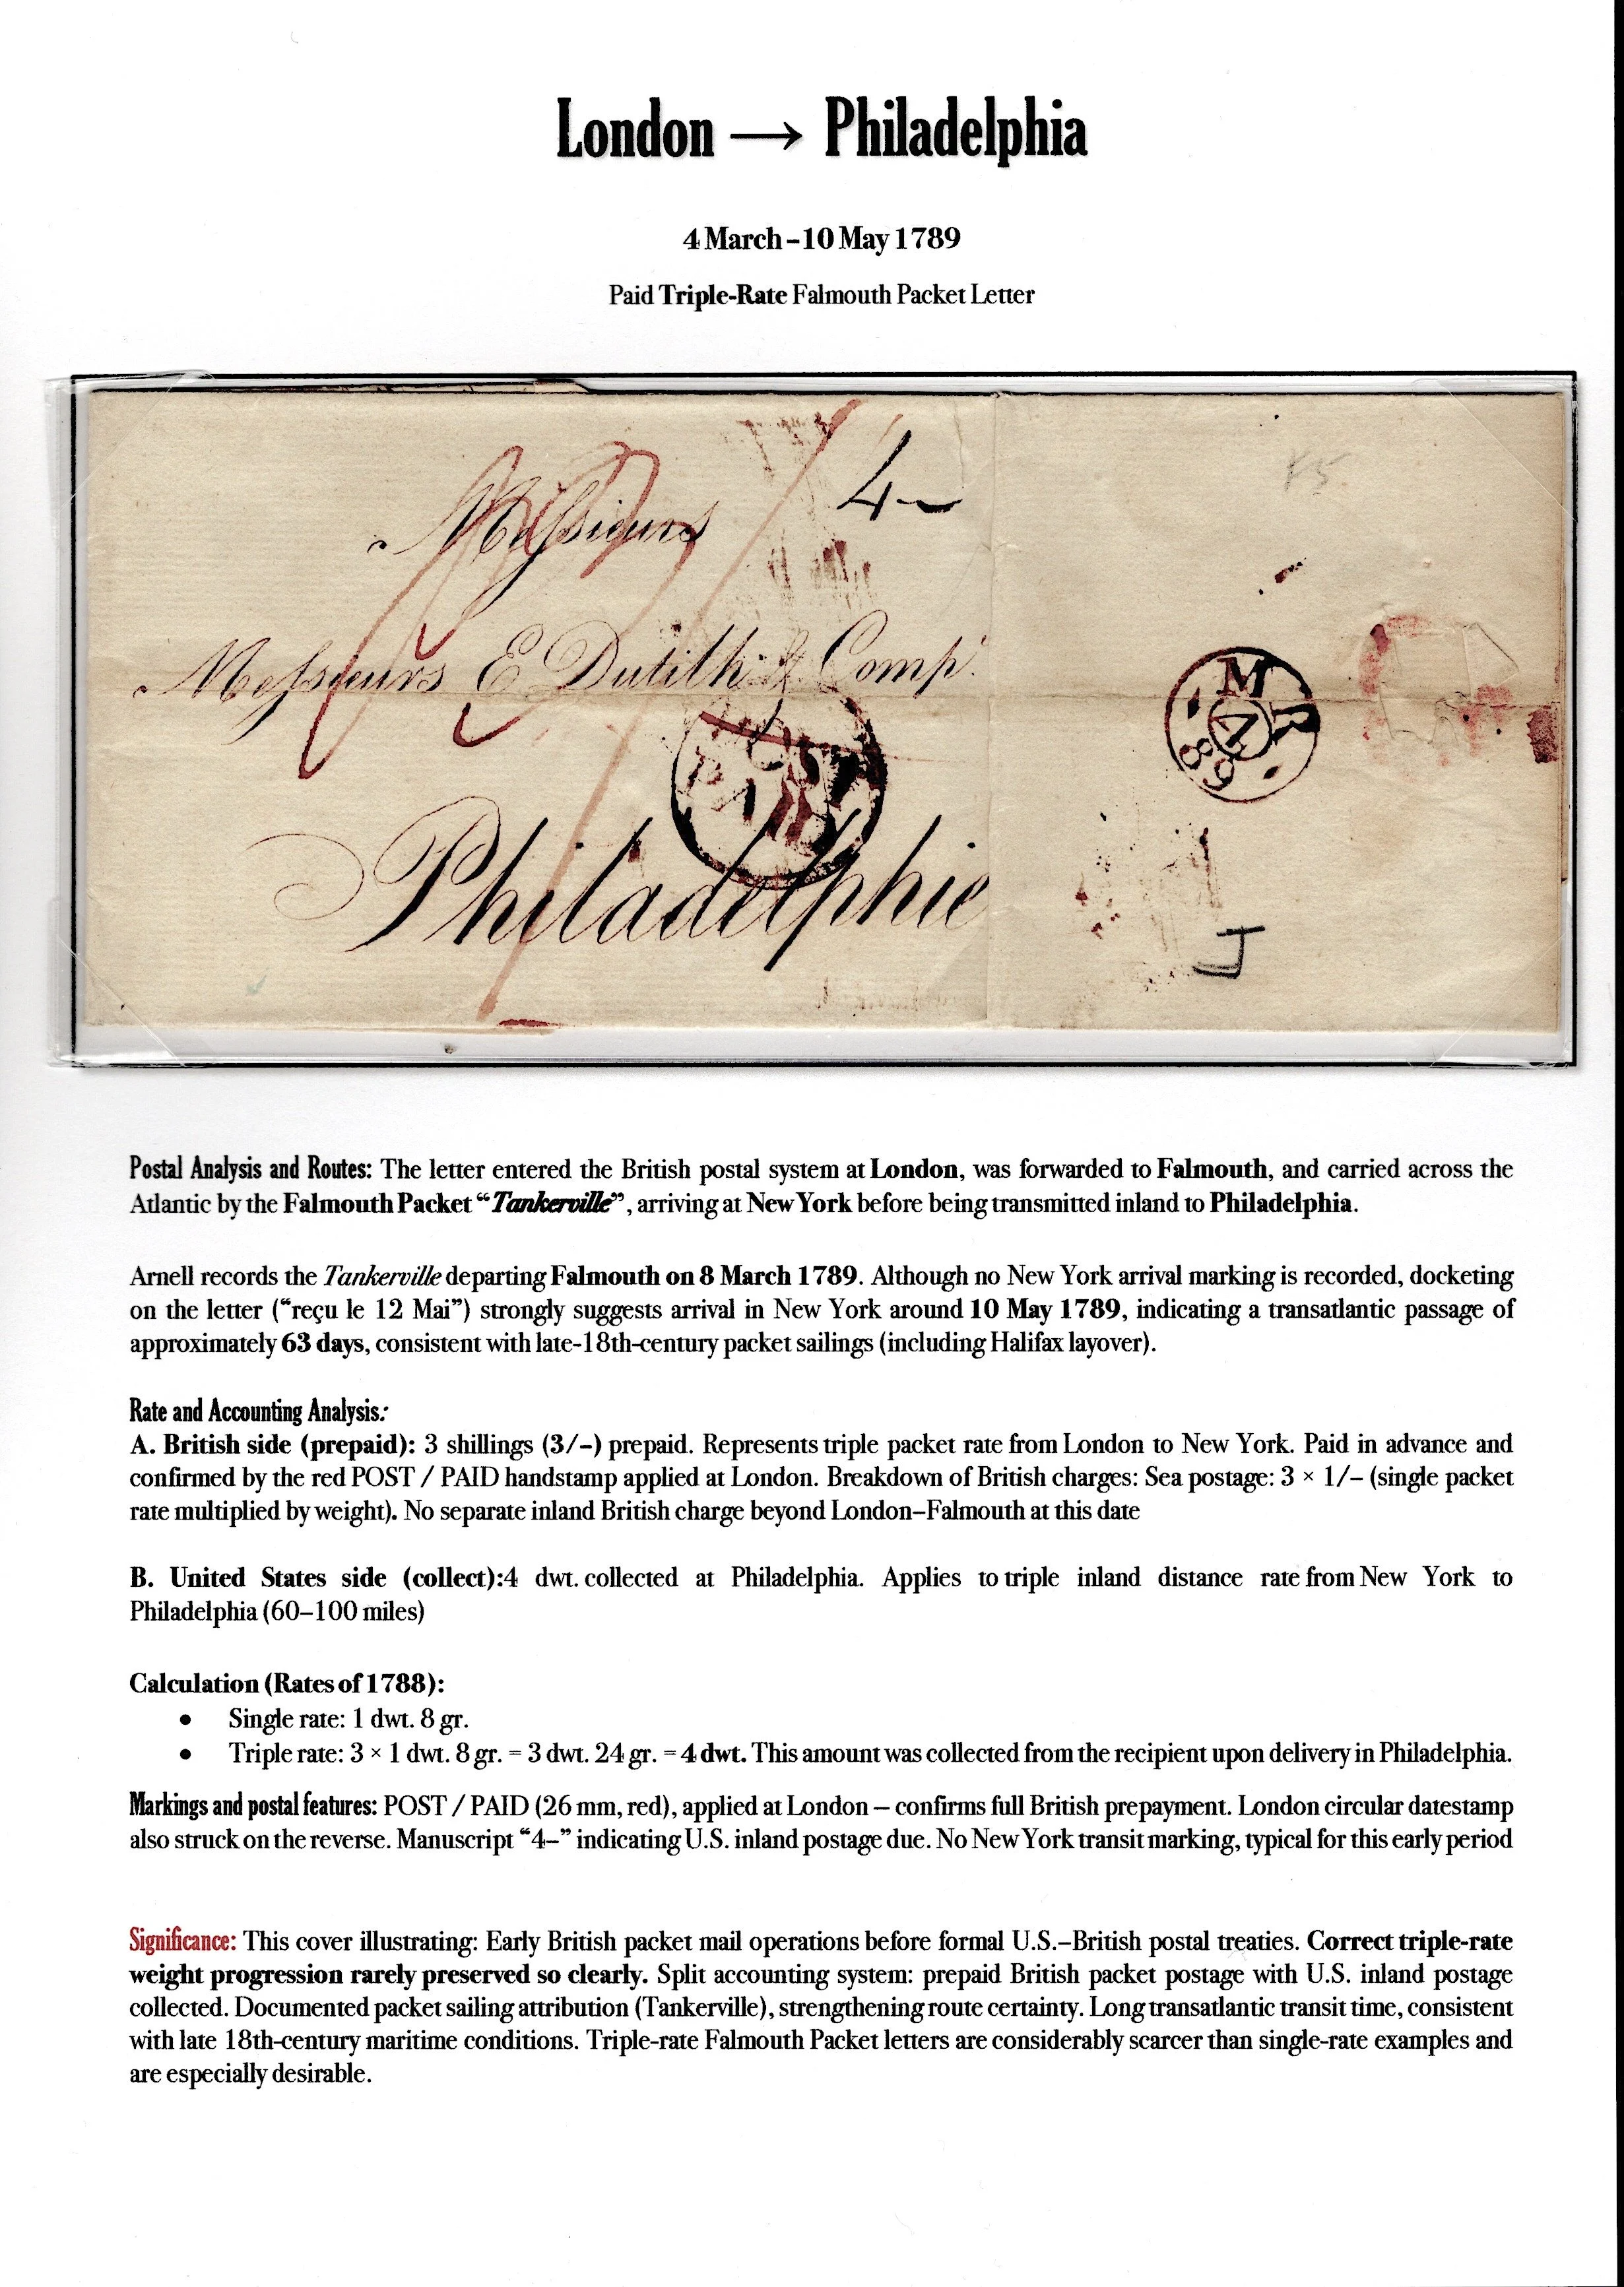 London → Philadelphia
4 March – 10 May 1789
Paid Triple-Rate Falmouth Packet Letter
4-
Messieurs
Messieurs E Dutilh & Comp.
Philadelphie
POST
PAID
MR
4
89
J
Postal Analysis and Routes: The letter entered the British postal system at London, was forwarded to Falmouth, and carried across the
Atlantic by the Falmouth Packet “Tankerville”, arriving at New York before being transmitted inland to Philadelphia.
Arnell records the Tankerville departing Falmouth on 8 March 1789. Although no New York arrival marking is recorded, docketing
on the letter (“reçu le 12 Mai”) strongly suggests arrival in New York around 10 May 1789, indicating a transatlantic passage of
approximately 63 days, consistent with late-18th-century packet sailings (including Halifax layover).
Rate and Accounting Analysis:
A. British side (prepaid): 3 shillings (3/–) prepaid. Represents triple packet rate from London to New York. Paid in advance and
confirmed by the red POST / PAID handstamp applied at London. Breakdown of British charges: Sea postage: 3 × 1/– (single packet
rate multiplied by weight). No separate inland British charge beyond London–Falmouth at this date
B. United States side (collect):4 dwt. collected at Philadelphia. Applies to triple inland distance rate from New York to
Philadelphia (60–100 miles)
Calculation (Rates of 1788):
• Single rate: 1 dwt. 8 gr.
• Triple rate: 3 × 1 dwt. 8 gr. = 3 dwt. 24 gr. = 4 dwt. This amount was collected from the recipient upon delivery in Philadelphia.
Markings and postal features: POST / PAID (26 mm, red), applied at London – confirms full British prepayment. London circular datestamp
also struck on the reverse. Manuscript “4–” indicating U.S. inland postage due. No New York transit marking, typical for this early period
Significance: This cover illustrating: Early British packet mail operations before formal U.S.–British postal treaties. Correct triple-rate
weight progression rarely preserved so clearly. Split accounting system: prepaid British packet postage with U.S. inland postage
collected. Documented packet sailing attribution (Tankerville), strengthening route certainty. Long transatlantic transit time, consistent
with late 18th-century maritime conditions. Triple-rate Falmouth Packet letters are considerably scarcer than single-rate examples and
are especially desirable.